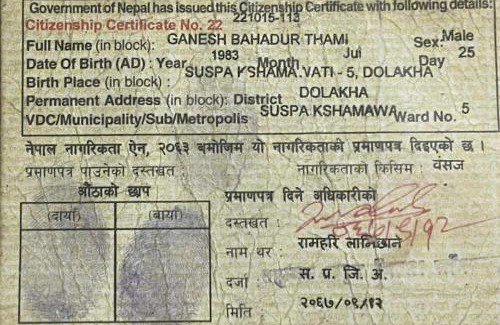 Government of Nepal has issued this Citizenship Certificate with following details:
Citizenship Certificate No. 22 221015-113
Full Name (in block): GANESH BAHADUR THAMI Sex: Male
Date Of Birth (AD) : Year 1983 Month Jul Day 25
Birth Place (in block) : SUSPA KSHAMAVATI - 5, DOLAKHA
Permanent Address (in block): District DOLAKHA
VDC/Municipality/Sub/Metropolis SUSPA KSHAMAWA Ward No. 5
नेपाल नागरिकता ऐन, २०६३ बमोजिम यो नागरिकताको प्रमाणपत्र दिइएको छ ।
प्रमाणपत्र पाउनेको दस्तखत : नागरिकताको किसिम : वंसज
औंठाको छाप प्रमाणपत्र दिने अधिकारीको
(दायाँ) (बायाँ)
दस्तखत :
नाम थर : रामहरि लामिछाने
दर्जा : स. प्र. जि. अ.
मिति : २०६७/०९/१२